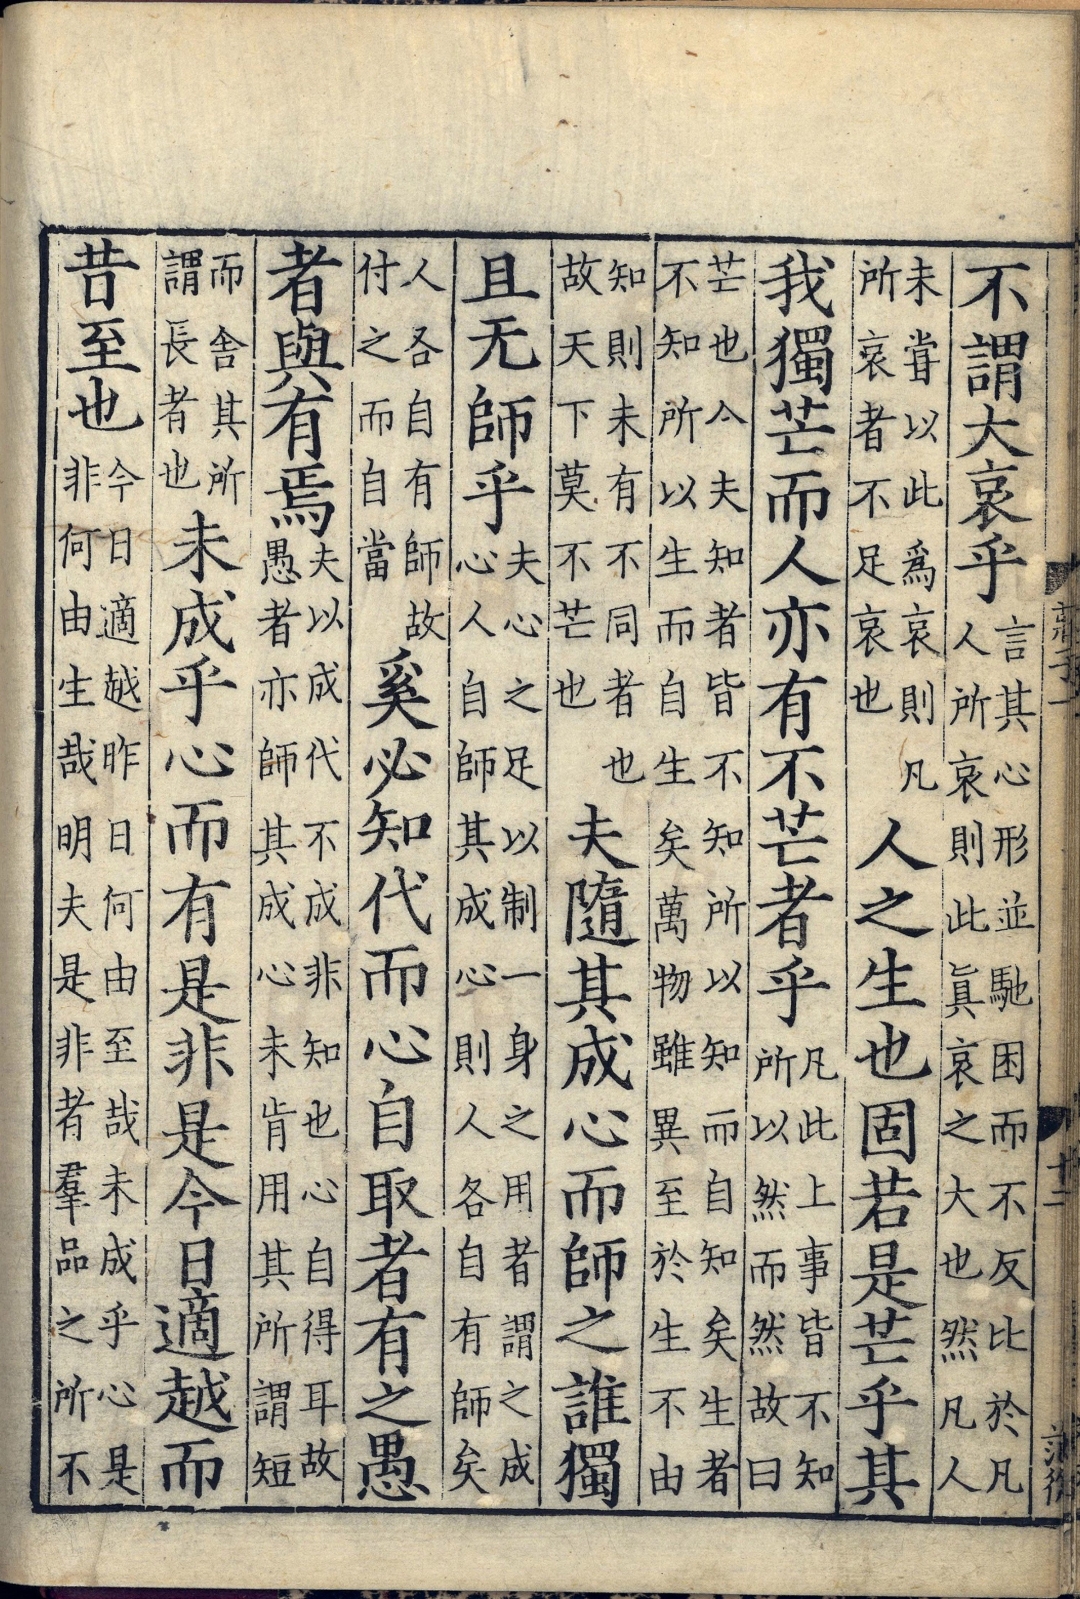 不謂大哀乎言其心形並馳困而不反比於凡人所哀則此真哀之大也然凡人
未嘗以此爲哀則凡所哀者不足哀也人之生也固若是芒乎其
我獨芒而人亦有不芒者乎凡此上事皆不知所以然而然故曰
芒也今夫知者皆不知所以知而自知矣生者不知所以生而自生矣萬物雖異至於生不由
知則未有不同者也故天下莫不芒也夫隨其成心而師之誰獨
且无師乎夫心之足以制一身之用者謂之成心人自師其成心則人各自有師矣
人各自有師故付之而自當奚必知代而心自取者有之愚
者與有焉夫以成代不成非知也心自得耳故愚者亦師其成心未肯用其所謂短
而舍其所謂長者也未成乎心而有是非是今日適越而
昔至也今日適越昨日何由至哉未成乎心是非何由生哉明夫是非者羣品之所不
莊子一
十二